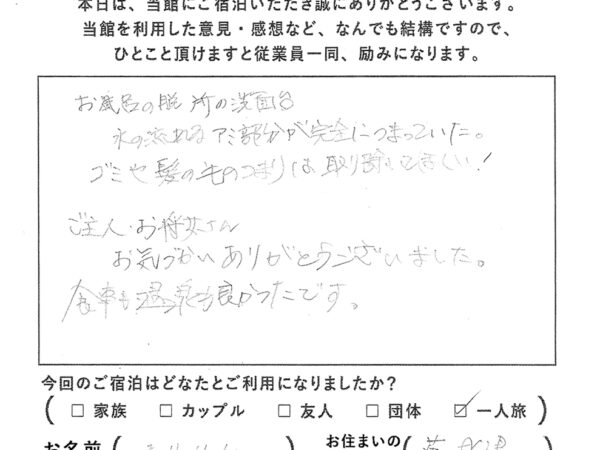 本日は、当館にご宿泊いただき誠にありがとうございます。
当館を利用した意見・感想など、なんでも結構ですので、
ひとこと頂けますと従業員一同、励みになります。
お風呂の脱 所の洗面台
水の流れるアミ部分が完全につまっていた。
ゴミや髪の毛のつまりは取り除いてほしい！
ご主人・お将女さん
お気づかいありがとうございました。
食事も温泉も良かったです。
今回のご宿泊はどなたとご利用になりましたか?
( □ 家族 □ カップル □ 友人 □ 団体 ☑ 一人旅 )
お名前 ( ) お住まいの (